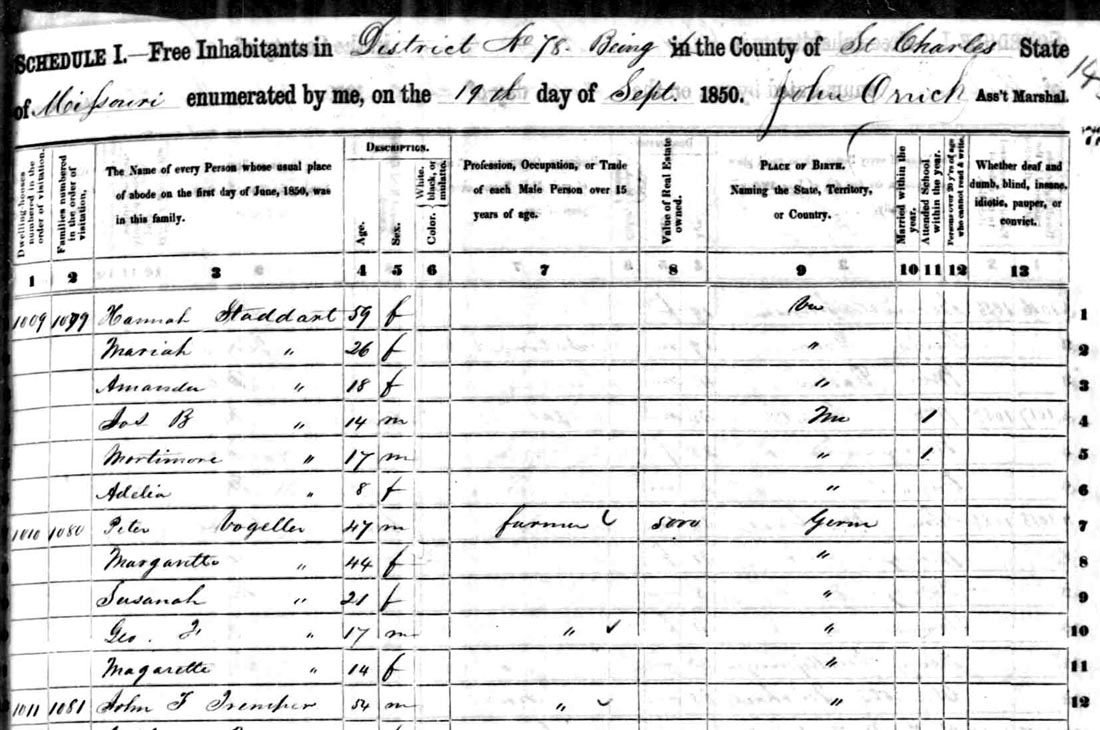 SCHEDULE I.—Free Inhabitants in District No 78. Being in the County of St Charles State
of Missouri enumerated by me, on the 19th day of Sept. 1850. John Orrick Ass't Marshal.
Dwelling houses numbered in the order of visitation.
Families numbered in the order of visitation.
The Name of every Person whose usual place of abode on the first day of June, 1850, was in this family.
DESCRIPTION.
Age.
Sex.
Color. White, black, or mulatto.
Profession, Occupation, or Trade of each Male Person over 15 years of age.
Value of Real Estate owned.
PLACE OF BIRTH. Naming the State, Territory, or Country.
Married within the year.
Attended School within the year.
Persons over 20 y'rs of age who cannot read & write.
Whether deaf and dumb, blind, insane, idiotic, pauper, or convict.
1 2 3 4 5 6 7 8 9 10 11 12 13
1009 1079 Hannah Staddart 59 f 1
Mariah " 26 f " 2
Amanda " 18 f " 3
Jos B " 14 m Mo 1 4
Mortimore " 17 m " 1 5
Adelia " 8 f " 6
1010 1080 Peter Vogeller 47 m farmer 5000 Germ 7
Margarette " 44 f " 8
Susanah " 21 f " 9
Geo. F " 17 m " " 10
Magarette " 14 f " 11
1011 1081 John F Tremper 54 m " " 12